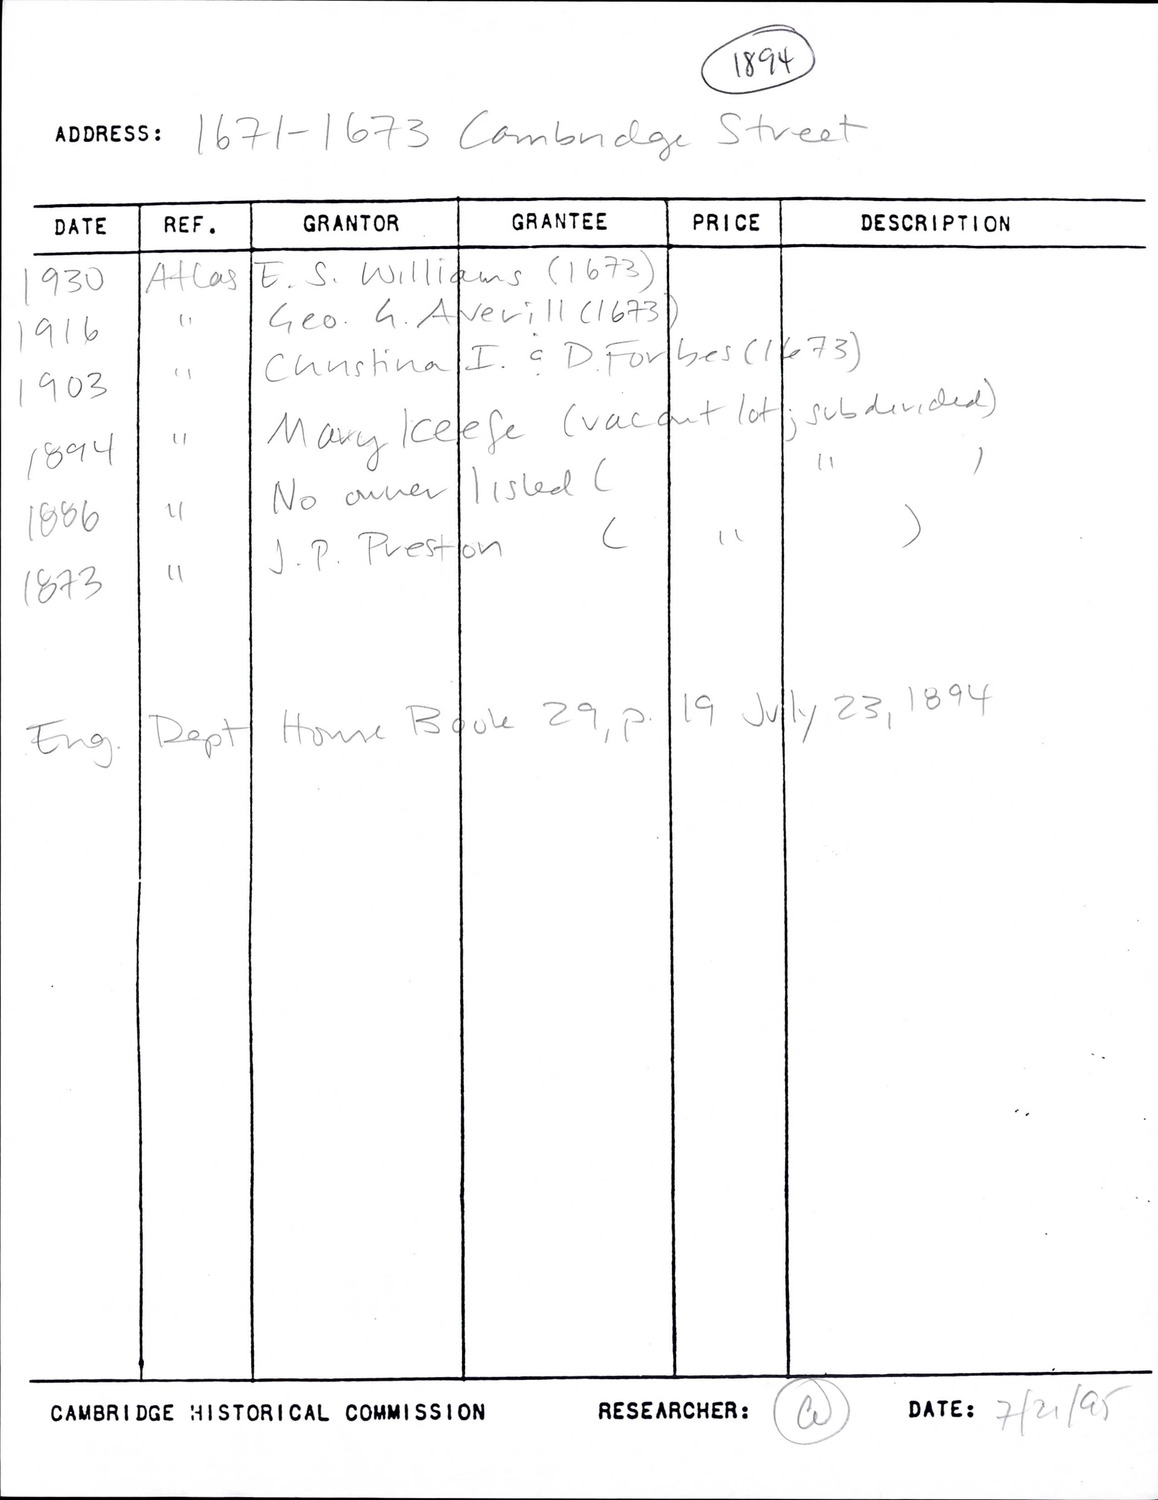 1894
ADDRESS: 1671-1673 Cambridge Street
DATE REF. GRANTOR GRANTEE PRICE DESCRIPTION
1930 Atlas E. S. Williams (1673)
1916 " Geo. G. Averill (1673)
1903 " Christina I. & D. Forbes (1673)
1894 " Mary Keefe (vacant lot; subdivided)
1886 " No owner listed ( " )
1873 " J. P. Preston ( " )
Eng. Dept House Book 29, p. 19 July 23, 1894
CAMBRIDGE HISTORICAL COMMISSION RESEARCHER: DATE: 7/21/95